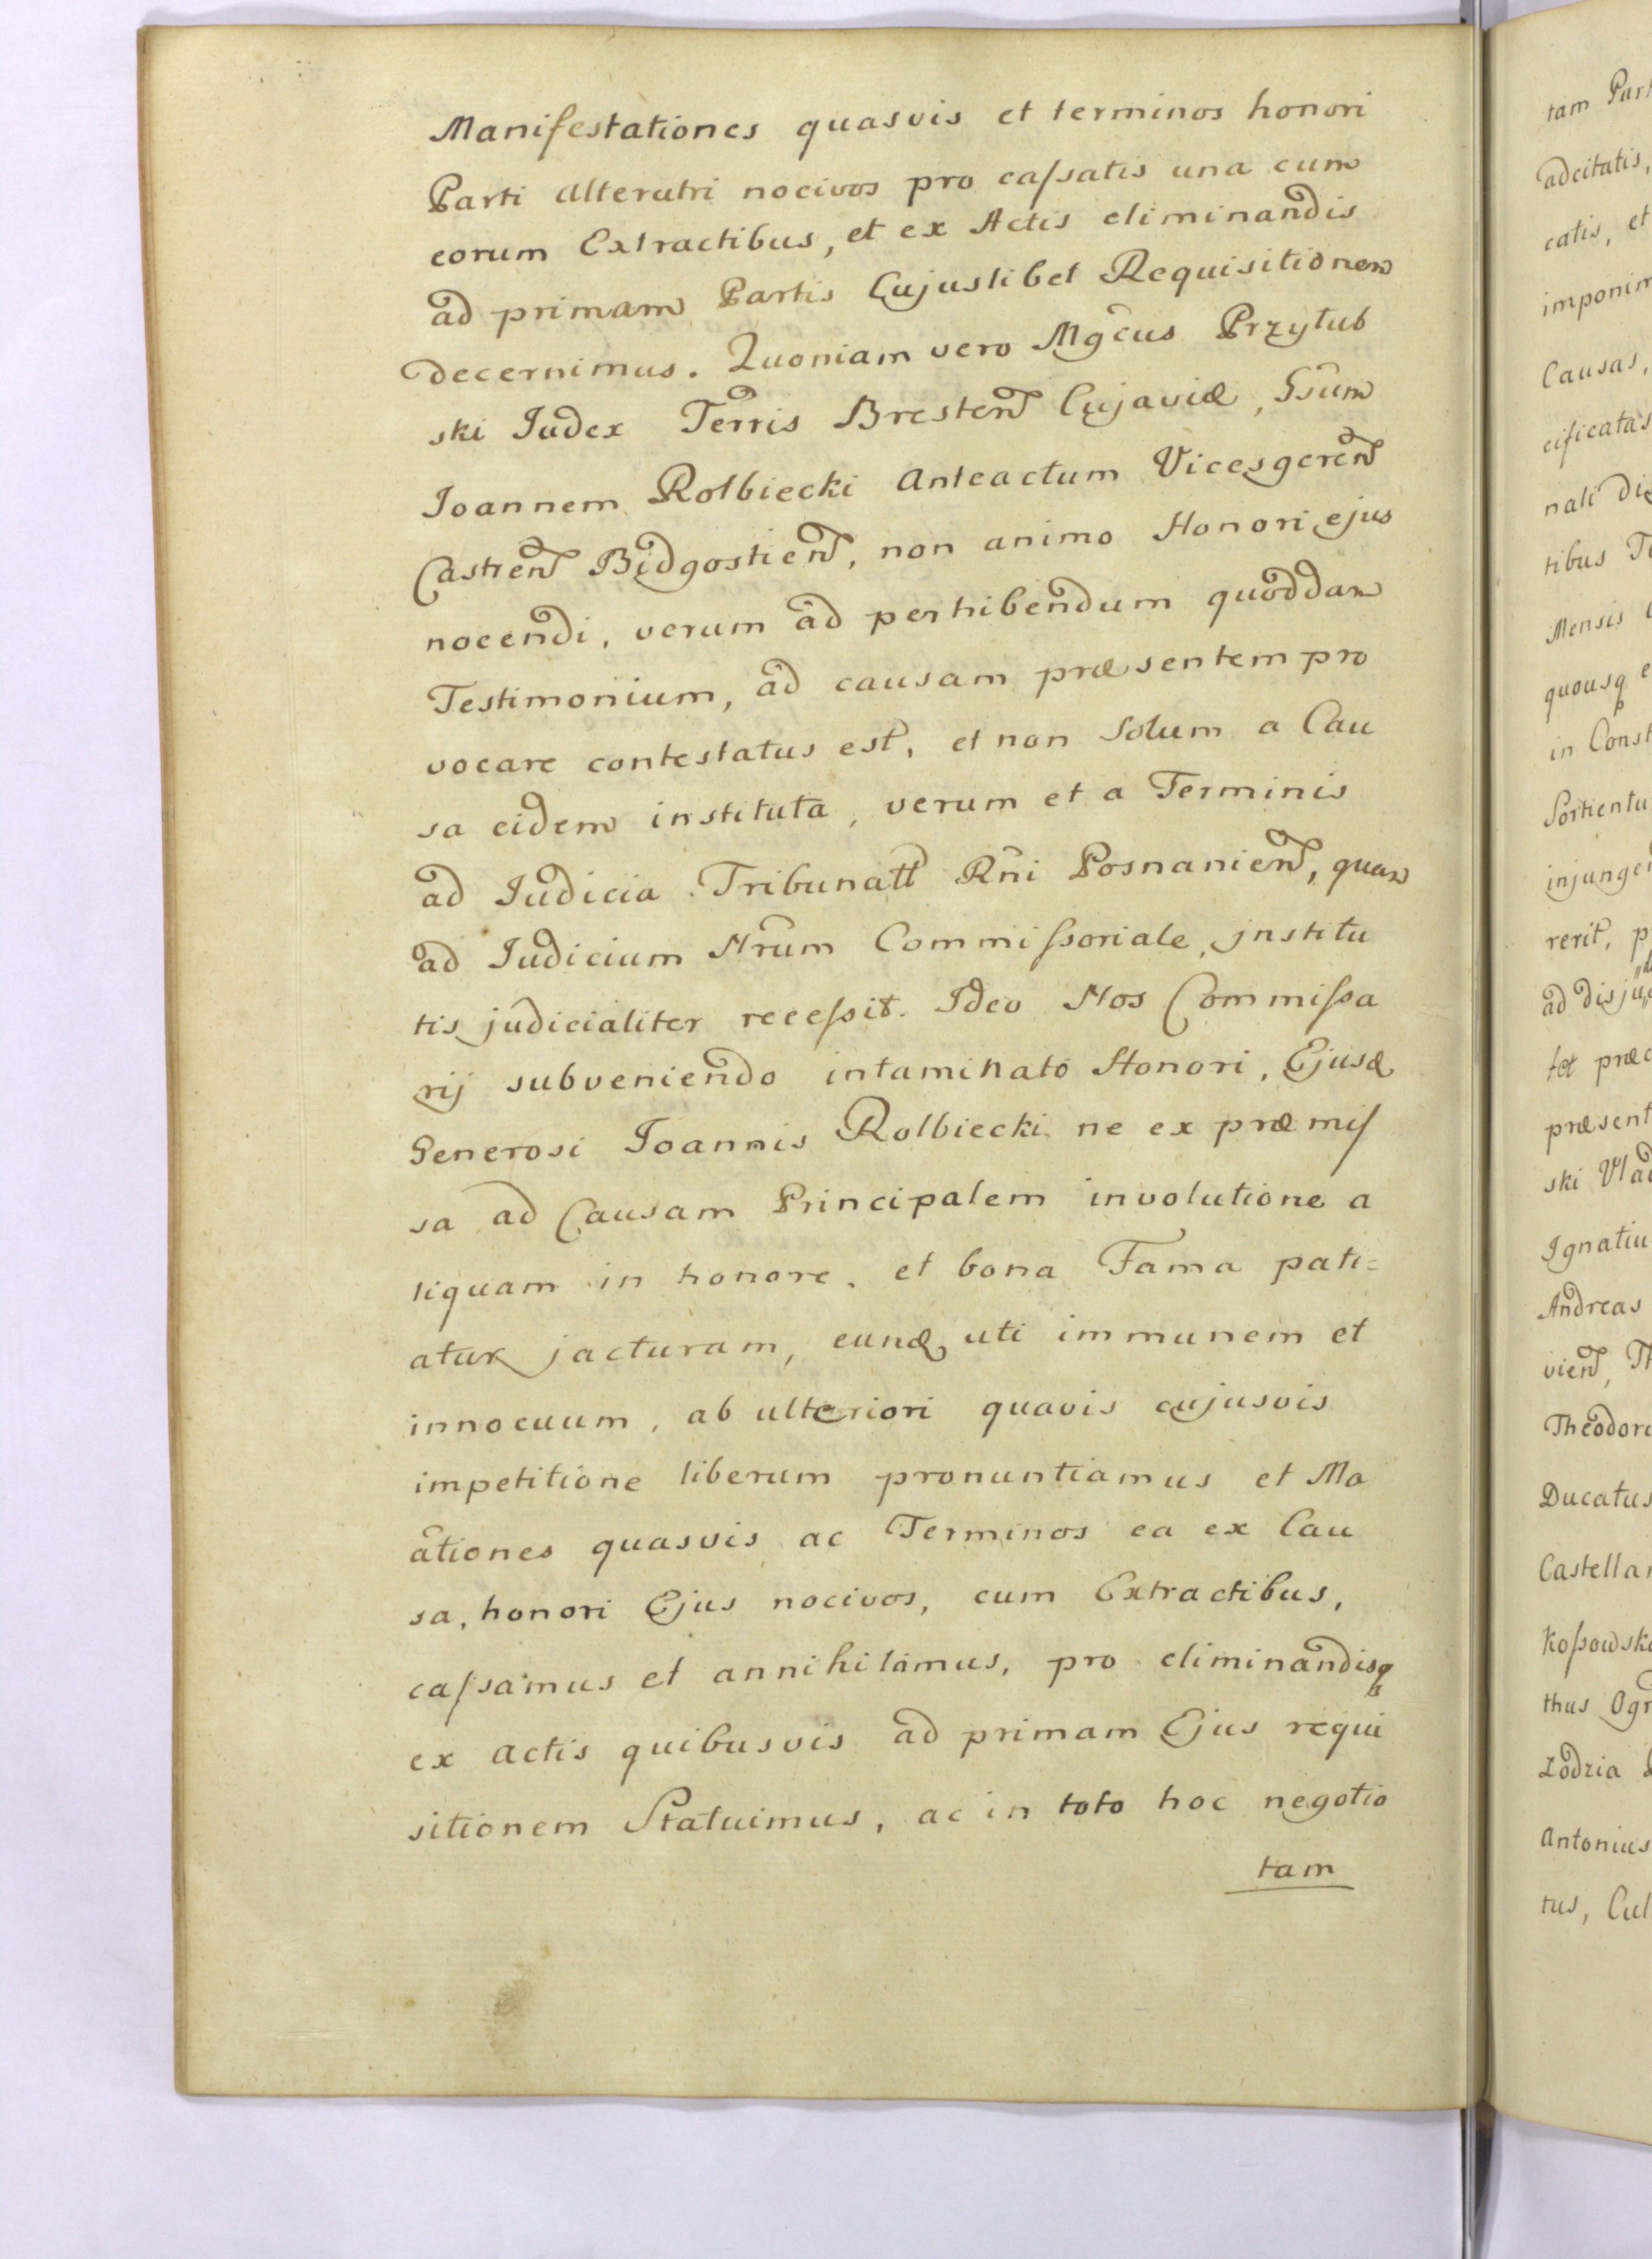 Manifestationes quasvis et terminos honori
Parti alterutri nocivos pro caſsatis una cum
eorum Extractibus, et ex Actis eliminandis
ad primam Partis Cujuslibet Requisitionem
decernimus. Quoniam vero Mgcus Przyłub
ski Judex Terris Bresten Cujaviæ, Gsum
Joannem Rolbiecki Anteactum Vicesgeren
Castren Bidgostien, non animo Honori ejus
nocendi, verum ad perhibendum quoddam
Testimonium, ad causam præsentem pro
vocare contestatus est, et non Solum a Cau
sa eidem instituta, verum et a Terminis
ad Judicia Tribunall Rni Posnanien, quam
ad Judicium Nrum Commiſsoriale, institu
tis judicialiter receſsit. Ideo Nos Commiſsa
rij subveniendo intaminato Honori, Ejusd
Generosi Joannis Rolbiecki ne ex præmiſ
sa ad Causam Principalem involutione a
liquam in honore, et bona Fama pati=
atur jacturam, eund uti immunem et
innocuum, ab ulteriori quavis cujusvis
impetitione liberum pronuntiamus et Ma
ationes quasvis ac Terminos ea ex Cau
sa, honori Ejus nocivos, cum Extractibus,
caſsamus et annihilamus, pro eliminandisq
ex Actis quibusvis ad primam Ejus requi
sitionem Statuimus, ac in toto hoc negotio
tam
tam Part
adcitatis,
catis, et
imponim
Causas,
cificatas
nali
tibus
Mensis
quousq
in Const
Sortientu
injungen
rerit,
ad
præsent
ski
Ignatiu
Andreas
vien,
Theodor
Ducatus
Castellan
Koſsowsk
thus
Łodzia
Antonius
tus, Cul